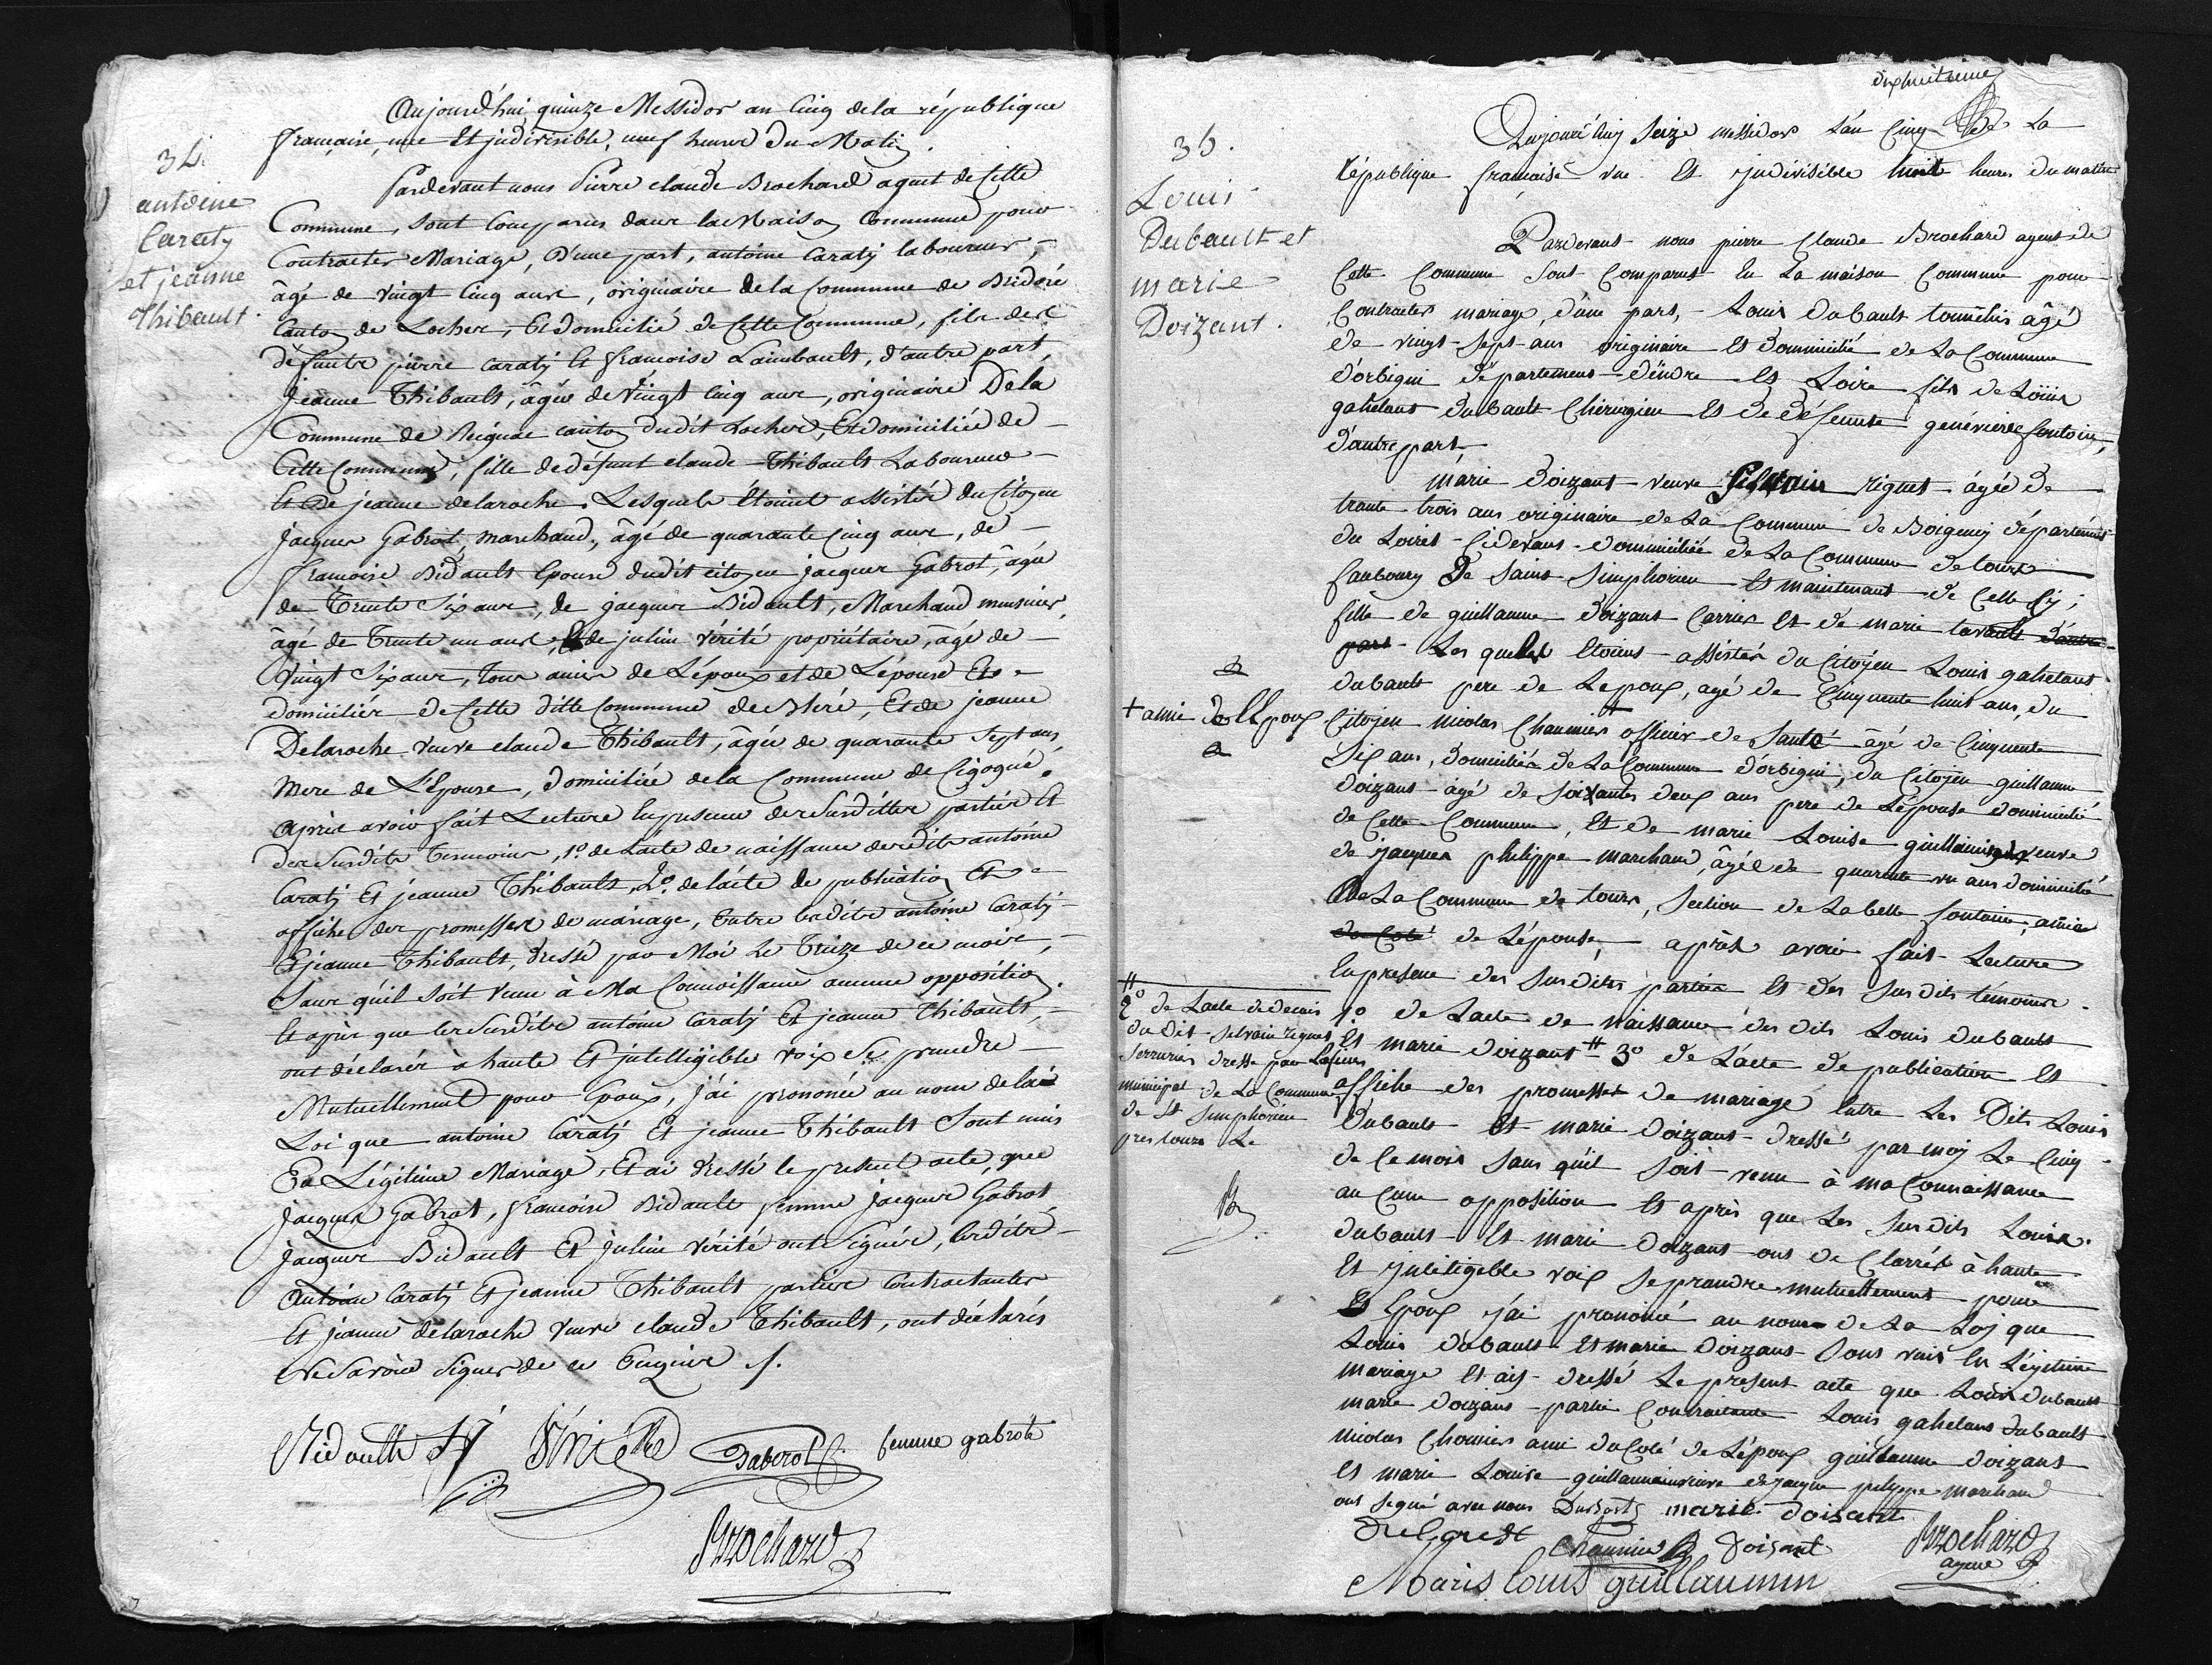 34.
antoine
Caraty
et jeanne
Thibault.
Aujourd'hui quinze Messidor an Cinq dela république
française, une Et judivisible, neuf heures du Matin.
Pardevant nous Pierre claude Brochard agent de Cette
Commune, sont Comparus dans la Maison Commune pour
Contracter Mariage, D'une part, antoine Caraty laboureur,
âgé de vingt Cinq ans, originaire dela Commune de Bridoré
Canton de Loches, Et domicilié de Cette Commune, fils des
défunts pierre Caraty Et françoise Laimbault, d'autre part,
Jeanne Thibault, âgée de Vingt Cinq ans, originaire Dela
Commune de Reignac canton dudit Loches, Et domiciliée de
Cette Commune, fille de défunt claude Thibault Laboureur
Et De jeanne delaroche. Lesquels étoient assistés du Citoyen
Jacques Gabrot, marchand, âgé de quarante Cinq ans, de
françoise Bidault Epouse dudit citoyen Jacques Gabrot, âgée
de Trente Six ans, de jacques Bidault, Marchand meunier,
âgé de Trente un ans, Et de julien Vérité propriétaire, âgé de
Vingt Six ans, Tous amis de L'époux et de L'épouse Et
domiciliés de Cette ditte Commune de Bléré, Et de jeanne
Delaroche veuve claude Thibault, âgée de quarante Sept ans
Mere de L'Epouse, domiciliée dela Commune de Cigogné.
Après avoir fait Lecture En presence des Susdittes parties Et
des Susdits Temoins, 1°. de Lacte de naissance desdits antoine
Caraty Et jeanne Thibault, 2°. de lacte de publication Et
affiche des promesses de mariage, Entre lesdits antoine Caraty
Et jeanne Thibault, dressé par Moi Le Treize de ce mois,
Sans qu'il Soit venu à Ma Connoissance aucune opposition.
Et après que les Susdits antoine Caraty Et jeanne Thibault,
ont déclarés à haute Et intelligible voix Se prendre
Mutuellement pour Epoux, j'ai prononcé au nom dela
Loi que antoine Caraty Et jeanne Thibault Sont unis
En Légitime Mariage, Et ai dressé le present acte, que
Jacques Gabrot, françoise Bidault femme Jacques Gabrot
Jacques Bidault Et Julien Vérité ont Signés, lesdits
Antoine Caraty Et jeanne Thibault parties Contractantes
Et jeanne delaroche veuve claude Thibault, ont déclarés
ne Savoir Signer de ce Enquis ./.
Bidault Vérité Gaberot femme gabrote
Brochard
dixhuitieme
35.
Louis
Dubault et
marie
Doizant.
Aujourd'huy Seize messidor L'an Cinq de La
république française une Et judivisible huit heures du matin
Pardevant nous pierre Claude Brochard agent de
Cette Commune Sont Comparus En La maison Commune pour
Contracter mariage, d'une part, Louis Dubault tonnelier âgé
de vingt-sept ans originaire Et domicilié de La Commune
d'orbigni département d'indre Et Loire fils de Louis
gatelant dubault Chirurgien Et de défeunte genéviève fontoin,
d'autre part
marie doizant veuve Silvain riguet âgée de
trante trois ans originaire de La Commune de Boigeney département
du Loiret Cidevant domiciliée de La Commune de tours
faubourg De Saint Simphorien Et maintenant de Celle Cy,
fille de guillaume doizant Carrier Et de marie tavault d'autre
part Les quels Etoient assistés du Citoyen Louis gatelant
dubault pere de Lepoux, agé de Cinquente huit ans, du
+ amie de L'Epoux
Citoyen nicolas Chaumier officier de Santé âgé de Cinquente
Six ans, domiciliés de La Commune d'orbigni, du Citoyen guillaume
doizant âgé de Soixantes deux ans pere de L'épouse domicilié
de Cette Commune, Et de marie Louise guillaumin veuve
de jacques philippe marchand, âgée de quarente un ans domiciliée
de La Commune de tours, Section de La belle fontaine, amie
du Coté de L'épouse, après avoir fait Lecture
En presence des Susdites parties Et des Susdits témoins
1° de Lacte de naissance des dits Louis dubault
Et marie doizant # 3° de L'acte de publication Et
affiche des promesses de mariage Entre Les Dits Louis
dubault Et marie doizant dressé par moy Le Cinq
de Ce mois Sans qu'il Soit venu à ma Connaissance
au Cune opposition Et après que Les Susdits Louis
dubault Et marie doizant ont de Clarrés à haute
Et jntéligible voix Se prandre mutuellement pour
Epoux j'ai prononcé au nom de La Loy que
Louis dubault Et marie doizant Sont unis En Légitime
mariage Et ay dressé Le present acte que Louis dubault
marie doizant partie Contractante Louis gatelant dubault
nicolas Chomier ami du Coté de L'époux guillaume doizant
Et marie Louise guillaumin veuve de jacque philippe marchand
ont Signé avec nous
#
2° de Lacte de decais
du dit Selvain riguet
Serrurier dressé par Lofficier
municipal de La Commune
de St Simphorien
pres tours Le
marie doisant
Chaumier Doisant Brochard
agent
Maris louis guillaumin